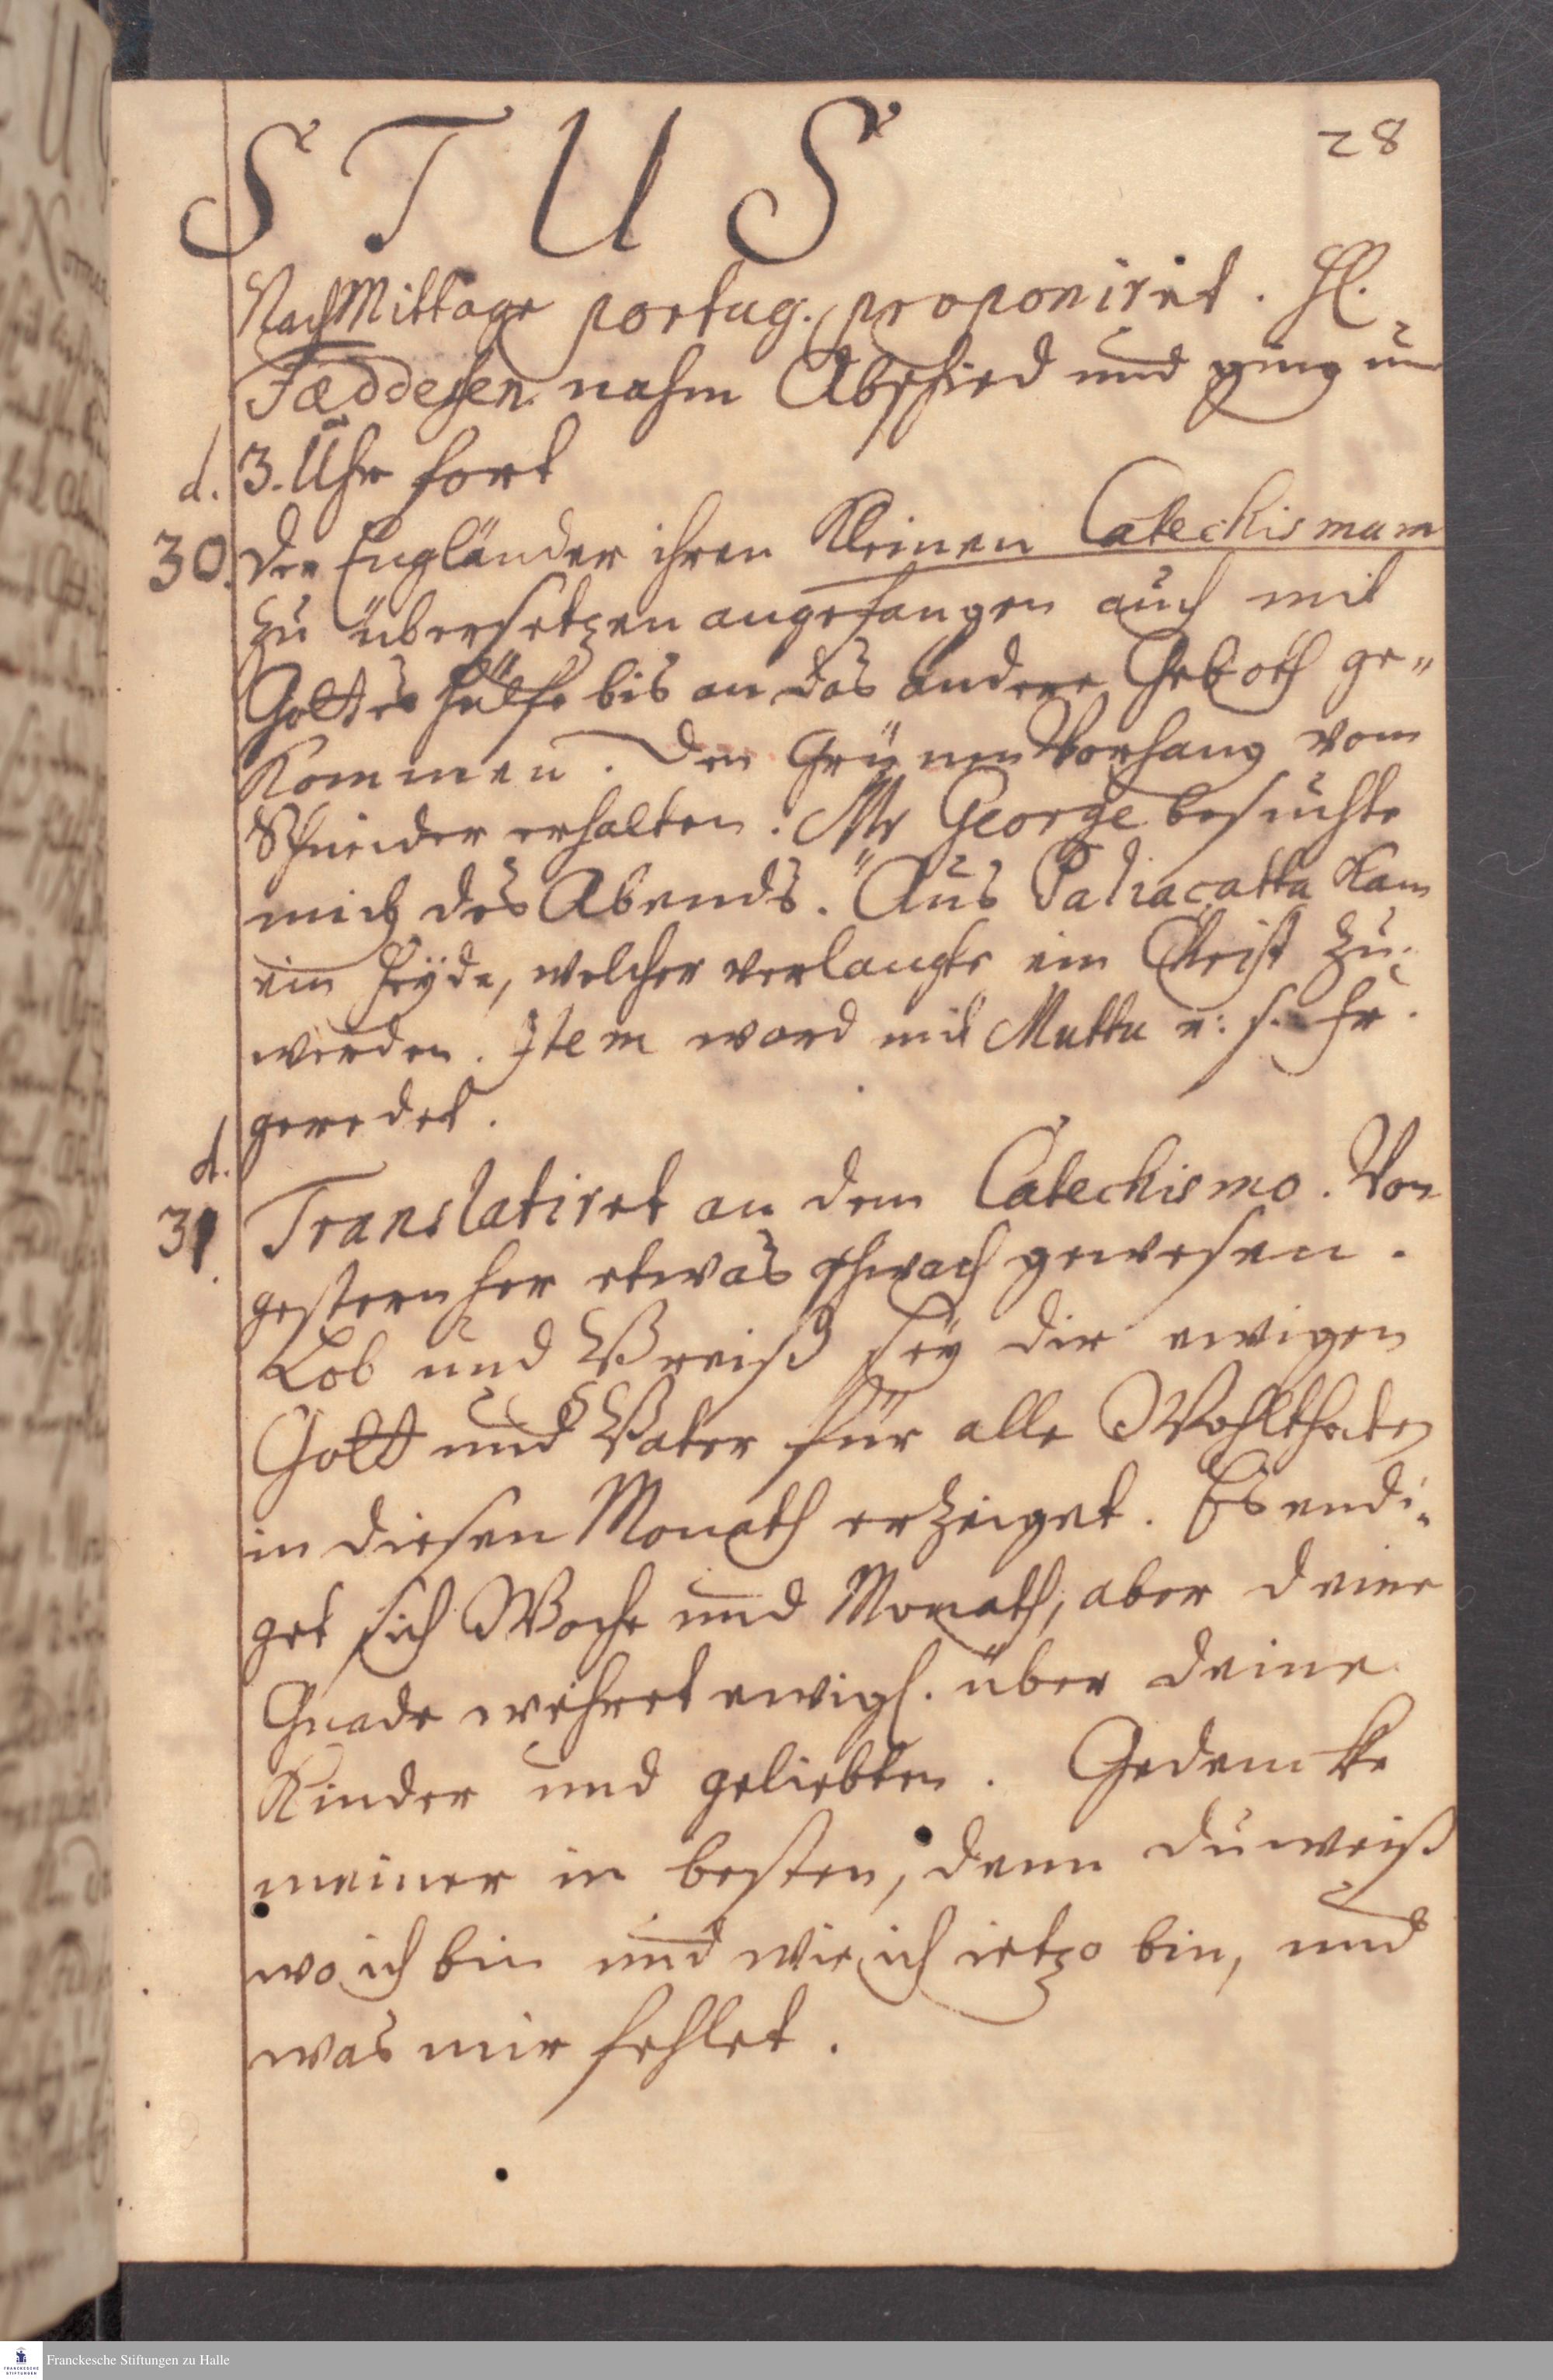 28
S T U S
NachMittage portug. proponiret. H.
Fæddersen. nahm Abschied und ging um
d. 3. Uhr fort
30. Der Engländer ihren Kleinen Catechismum
zu übersetzen angefangen auch mit
Gottes Hülfe bis an das andere Geboth ge„
kommen. Den Grünen Vorhang vom
Schneider erhalten. Mr George besuchte
mich des Abends. Aus Paliacatta kam
ein Heyde, welcher verlangte ein Christ zu
werden. Item ward mit Muttu u: s. Fr.
geredet.
d.
31. Translatiret an dem Catechismo. Von
gestern her etwas schwach gewesen.
Lob und Preiß sey dir ewigen
Gott und Vater für alle Wohlthaten
in diesen Monath erzeiget. Es endi„
get sich Woche und Monath, aber deine
Gnade wehret ewigl. über deine
Kinder und geliebten. Gedencke
meiner in besten, denn du weiß
wo ich bin und wie ich ietzo bin, und
was mir fehlet.
Franckesche Stiftungen zu Halle